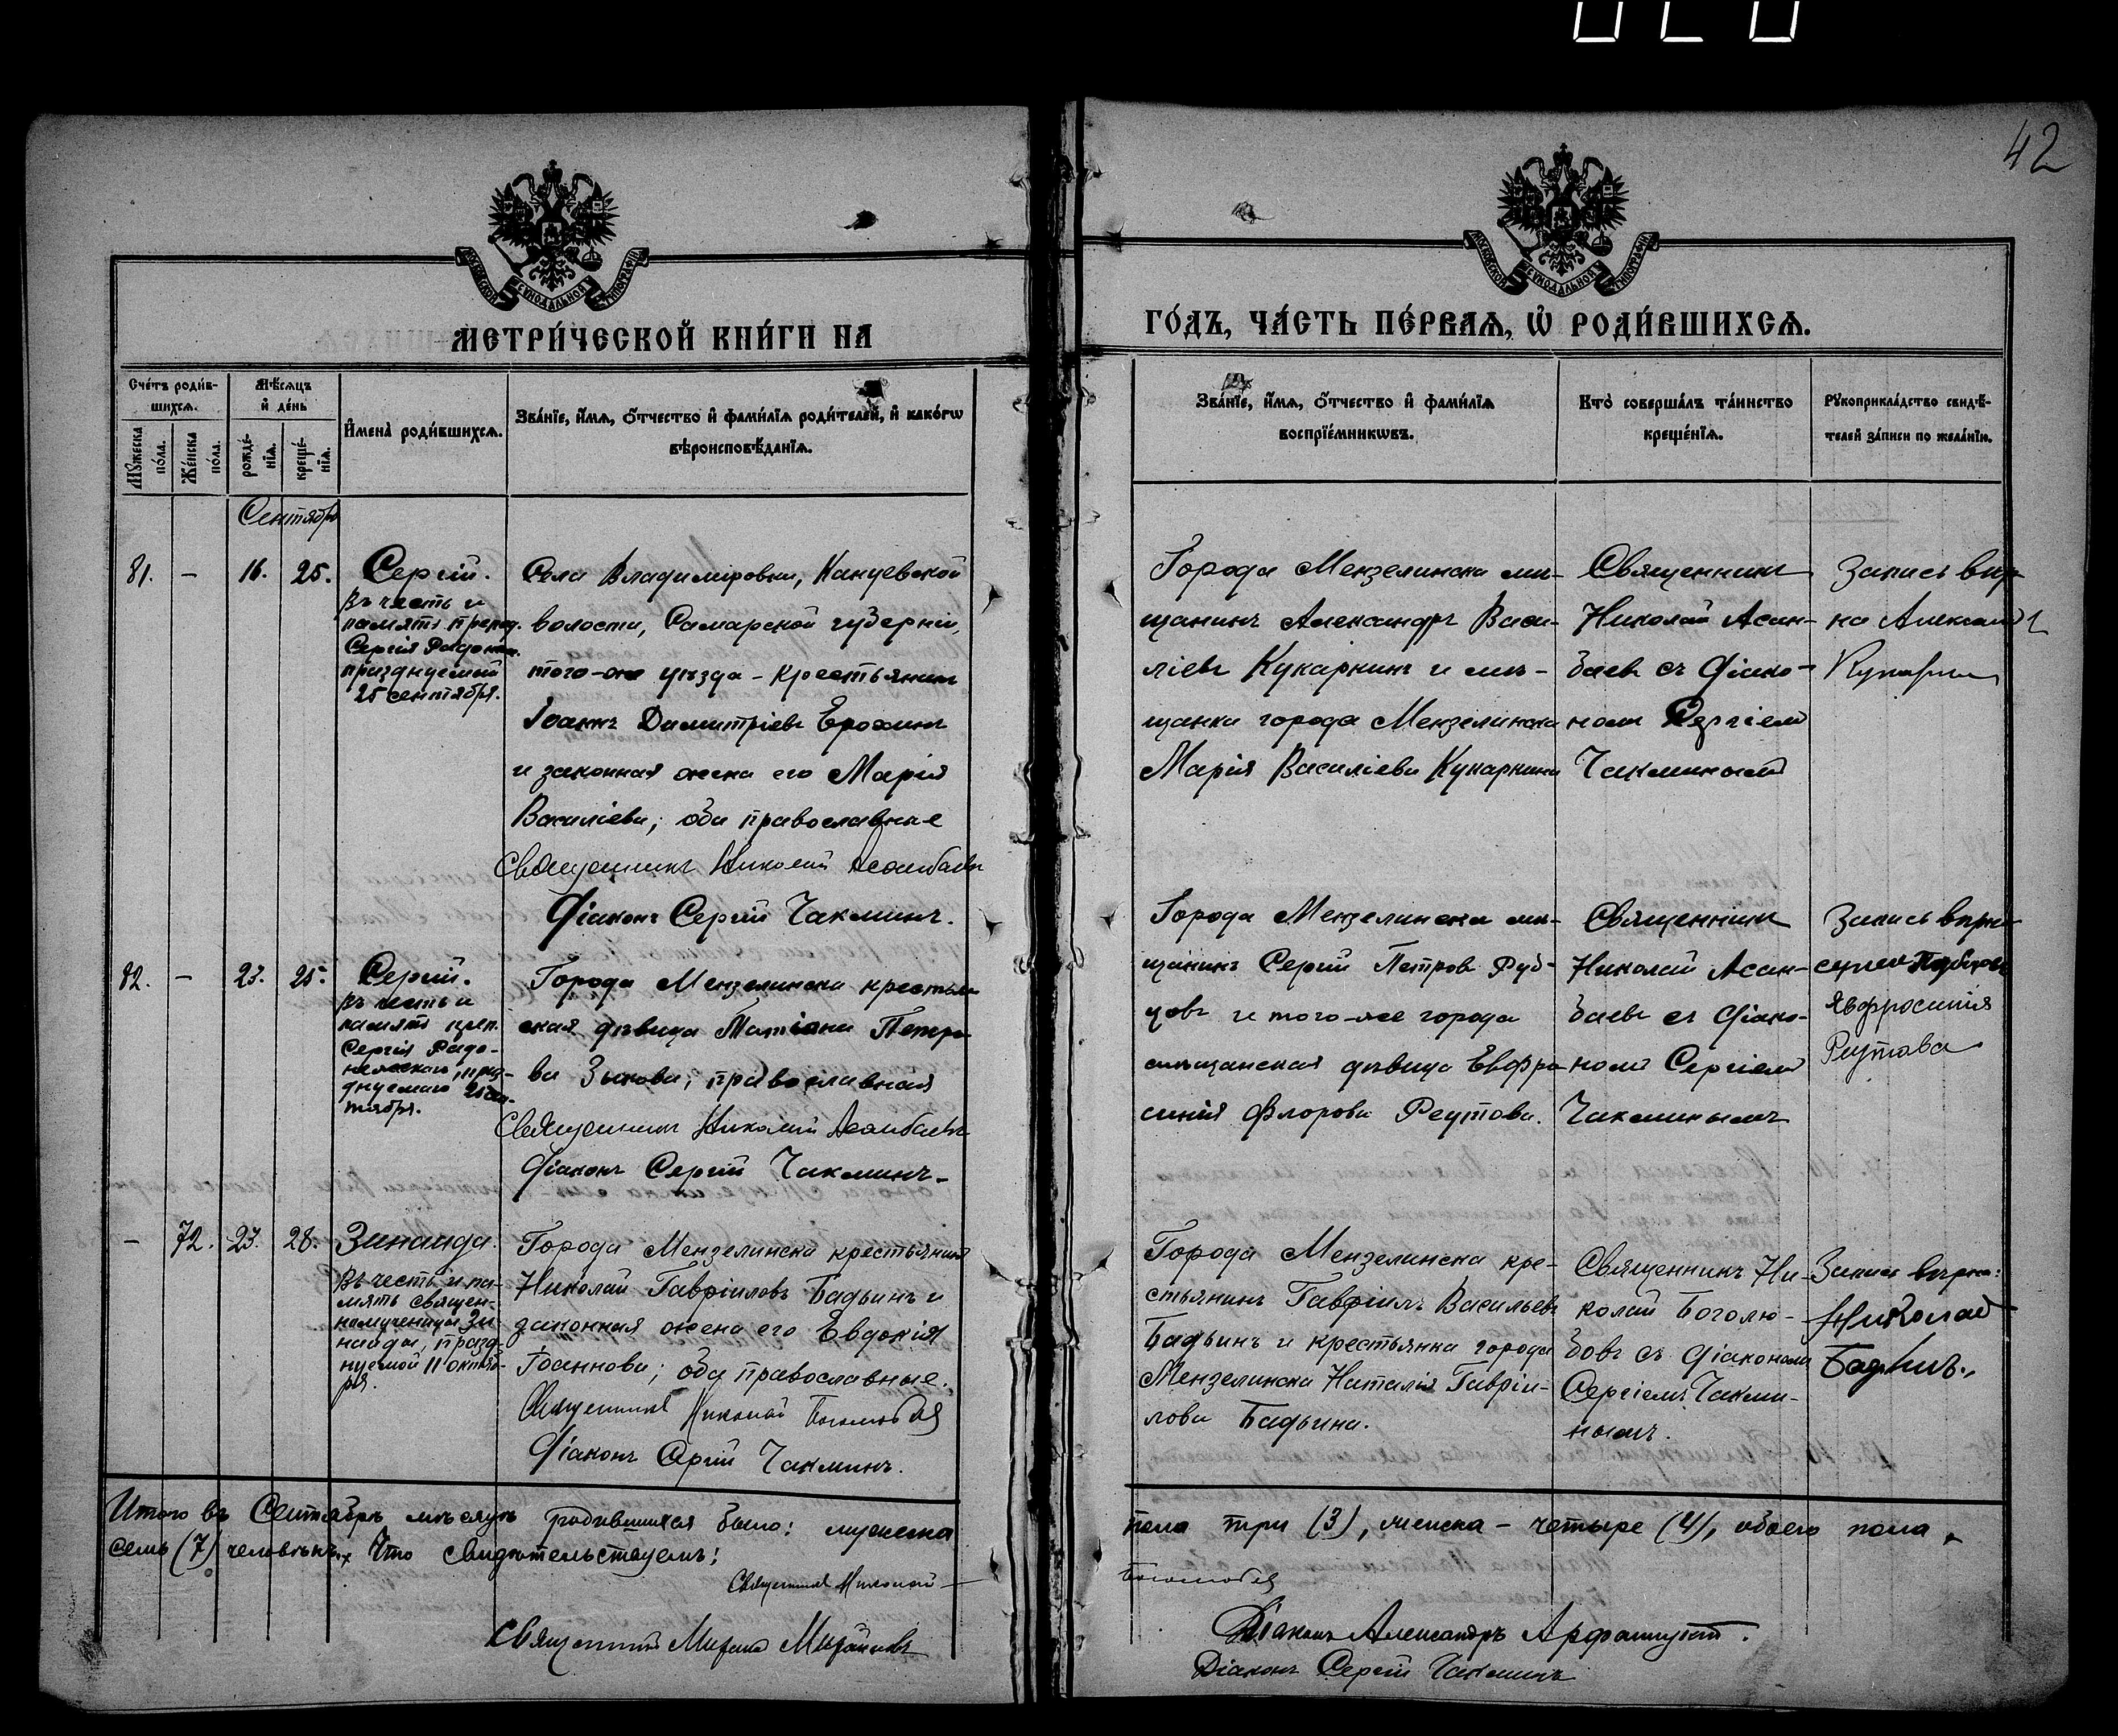 42
МОСКОВСКОЙ СѴНОДАЛЬНОЙ ТИПОГРАФІИ
МОСКОВСКОЙ СѴНОДАЛЬНОЙ ТИПОГРАФІИ
МЕТРИ́ЧЕСКОЙ КНИ́ГИ НА
ГО́ДЪ, ЧА́СТЬ ПЕ́РВАѦ, Ѡ҆ РОДИ́ВШИХСѦ.
Сче́тъ роди́в-
шихсѧ.
Мꙋ́жеска по́ла.
Же́нска по́ла.
Мѣ́сѧцъ
и҆ де́нь
рожде́-
нїѧ.
креще́-
нїѧ.
И҆мена̀ роди́вшихсѧ.
Зва́нїе, и҆́мѧ, ѻ҆́тчество и҆ фами́лїѧ роди́телей, и҆ како́гѡ
вѣроисповѣ́данїѧ.
Зва́нїе, и҆́мѧ, ѻ҆́тчество и҆ фами́лїѧ
воспрїе́мникѡвъ.
Кто̀ соверша́лъ та́инство
креще́нїѧ.
Рꙋкоприкла́дство свидѣ́-
телей за́писи по жела́нїю.
Сентябрь
81. — 16. 25.
Сергій.
Въ честь и
память препод.
Сергія Радонеж.
празднуемой
25 сентября.
Села Владиміровки, Кануевской
волости, Самарской губерніи,
того-же уѣзда - крестьянинъ
Іоаннъ Димитріевъ Ерохинъ
и законная жена его Марія
Василіева; оба православные
Священникъ Николай Асанбаевъ
Діаконъ Сергій Чакминъ.
Города Мензелинска мѣ-
щанинъ Александръ Васи-
ліевъ Кукаркинъ и мѣ-
щанка города Мензелинска
Марія Василіева Кукаркина
Священникъ
Николай Асан-
баевъ съ діако-
номъ Сергіемъ
Чакминымъ
Запись вѣр-
на Александр
82. — 23. 25.
Сергій.
Въ честь и
память преп.
Сергія Радо-
нежскаго, праз-
днуемаго 25 сен-
тября.
Города Мензелинска крестьян-
ская дѣвица Татіана Петро-
ва Зыкова; православная
Священникъ Николай Асанбаевъ
Діаконъ Сергій Чакминъ.
Города Мензелинска мѣ-
щанинъ Сергій Петровъ Руб-
цовъ и того-же города
мѣщанская дѣвица Евфро-
синія Флорова Реутова.
Священникъ
Николай Асан-
баевъ съ діако-
номъ Сергіемъ
Чакминымъ
Запись вѣрна
Евфросинія
Реутова
— 72. 23. 28.
Зинаида.
Въ честь и па-
мять священ-
номученицы Зи-
наиды, празд-
нуемой 11 октяб-
ря.
Города Мензелинска крестьянинъ
Николай Гавріиловъ Бадьинъ и
законная жена его Евдокія
Іоаннова; оба православные.
Священникъ Николай Боголюбовъ
Діаконъ Сергій Чакминъ.
Города Мензелинска кре-
стьянинъ Гавріилъ Васильевъ
Бадьинъ и крестьянка города
Мензелинска Наталія Гавріи-
лова Бадьина.
Священникъ Ни-
колай Боголю-
бовъ съ діакономъ
Сергіемъ Чакми-
нымъ.
Запись вѣрна:
Николай
Бадьинъ.
Итого въ Сентябрѣ мѣсяцѣ родившихся было: мужеска
пола три (3), женска - четыре (4), обоего пола
семь (7) человѣкъ. Что свидѣтельствуемъ:
Священникъ Николай
Боголюбовъ
Священникъ
Діаконъ Александръ
Діаконъ Сергій Чакминъ